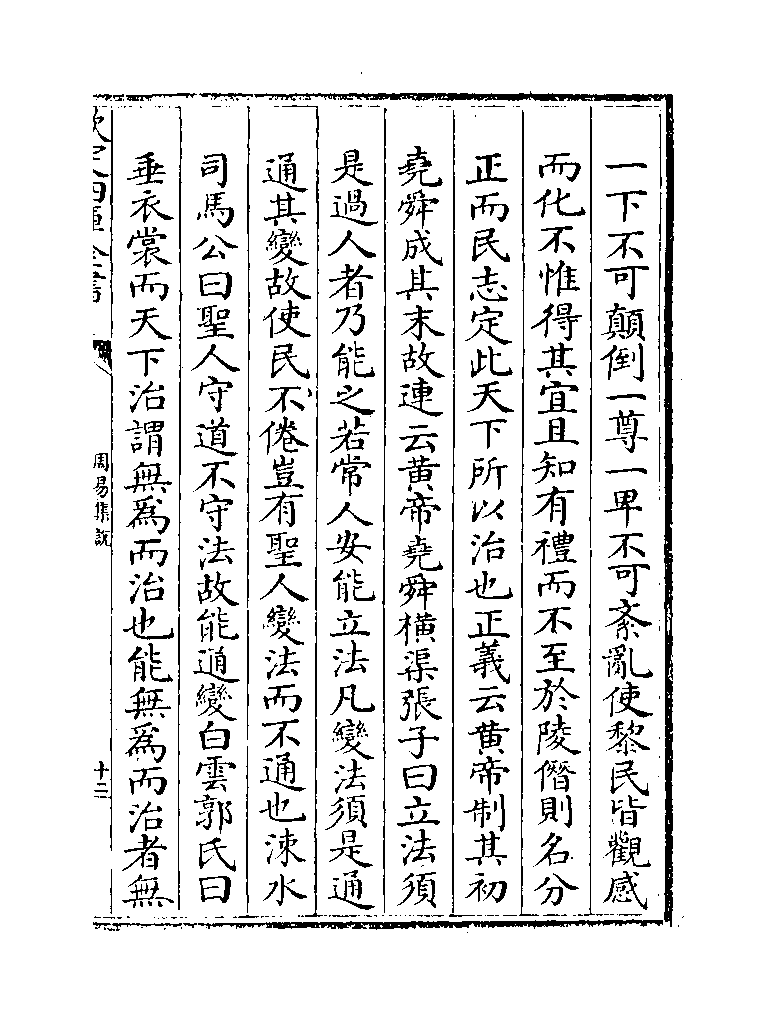 一下不可顛倒一尊一卑不可紊亂使黎民皆觀感
而化不惟得其宜且知有禮而不至於陵僭則名分
正而民志定此天下所以治也正義云黄帝制其初
堯舜成其末故連云黄帝堯舜橫渠張子曰立法須
是過人者乃能之若常人安能立法凡變法須是通
通其變故使民不倦豈有聖人變法而不通也涑水
司馬公曰聖人守道不守法故能通變白雲郭氏曰
垂衣裳而天下治謂無爲而治也能無爲而治者無
欽定四庫全書
周易集說
十二